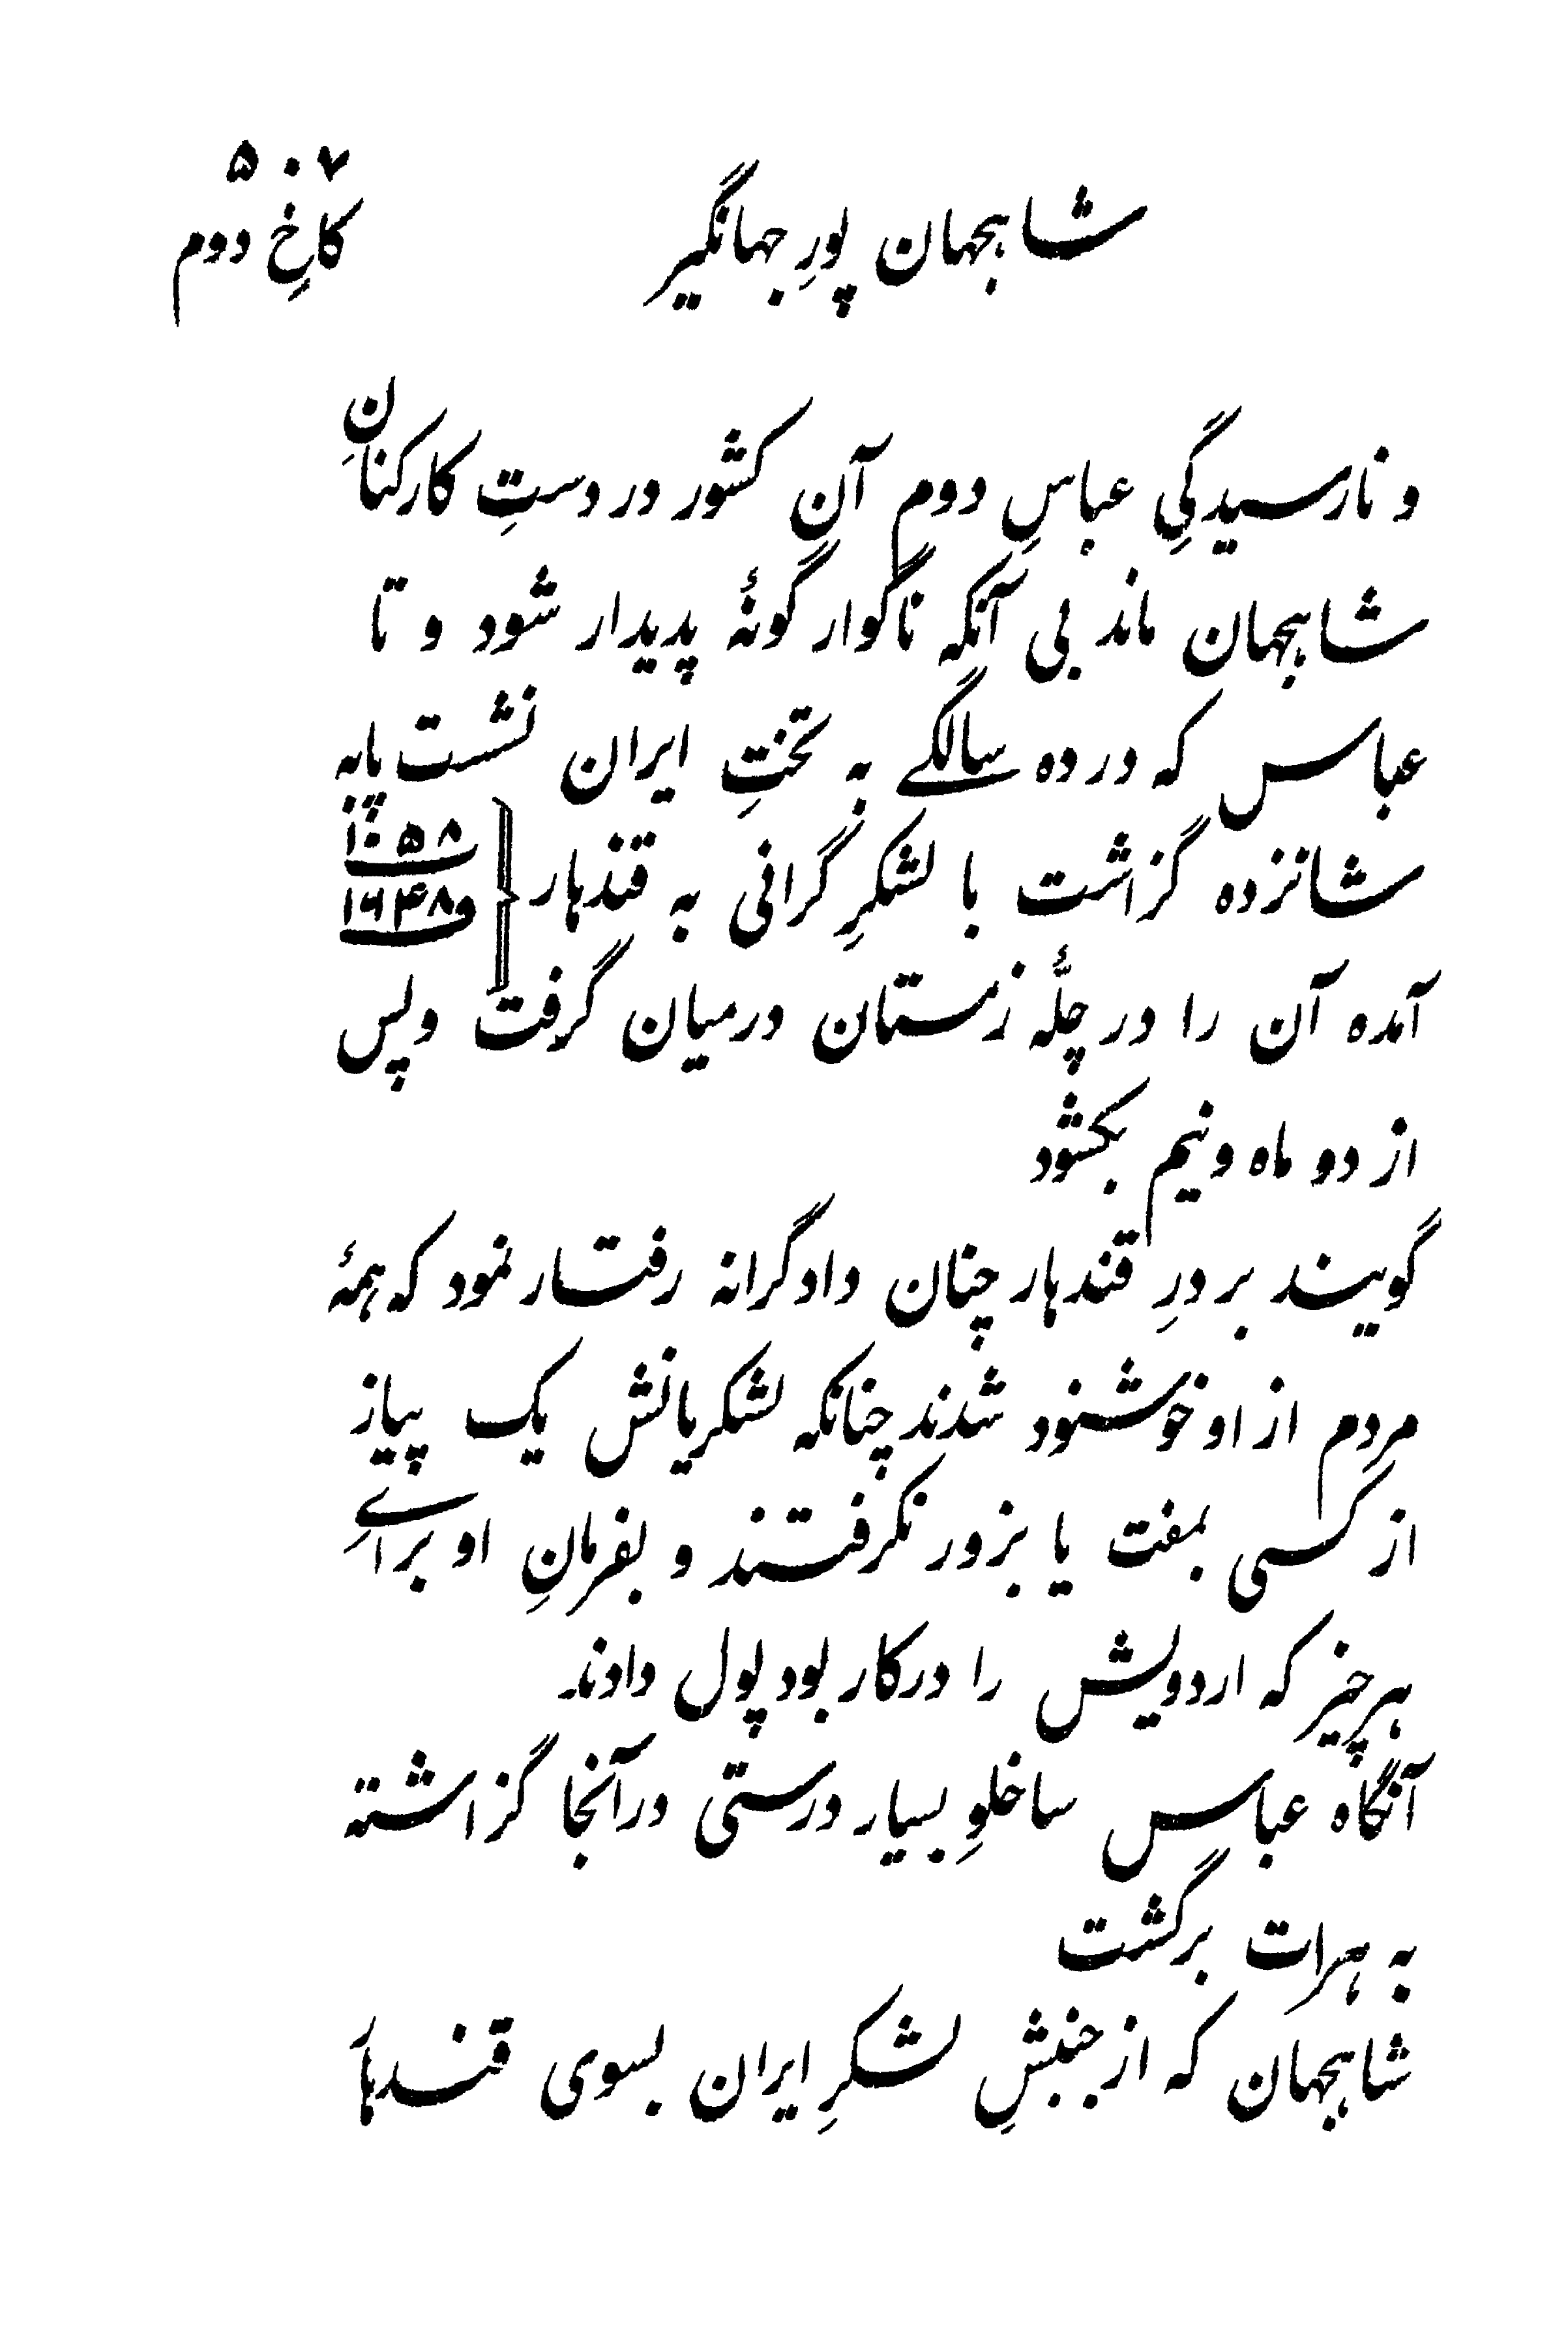 ۵۰۷
شاهجهان پورِ جهانگیر
کاخِ دوم
و نارسیدگیِ عباسِ دوم آن کشور در دستِ کارکنانِ
شاهجهان ماند بی آنکه ناگوار گونهٔ پدیدار شود و تا
عباس که در ده سالگے به تختِ ایران نشست پابه
شانزده گزاشت با لشکرِ گرانی به قندهار
۱۰۵۸
و۱۶۴۸
آمده آن را در چلّهٔ زمستان درمیان گرفت و پس
از دو ماه و نیم بکشود
گویند بر درِ قندهار چنان دادگرانه رفتار نمود که همهٔ
مردم از او خوشنود شدند چنانکه لشکریانش یک پیاز
از کسی بمفت یا بزور نگرفتند و بفرمانِ او براےِ
هر چیز که اردویش را درکار بود پول دادند
آنگاه عباس ساخلوِ بسیار درستی درآنجا گزاشته
به هرات برگشت
شاهجهان که از جنبشِ لشکرِ ایران بسوی قندهار